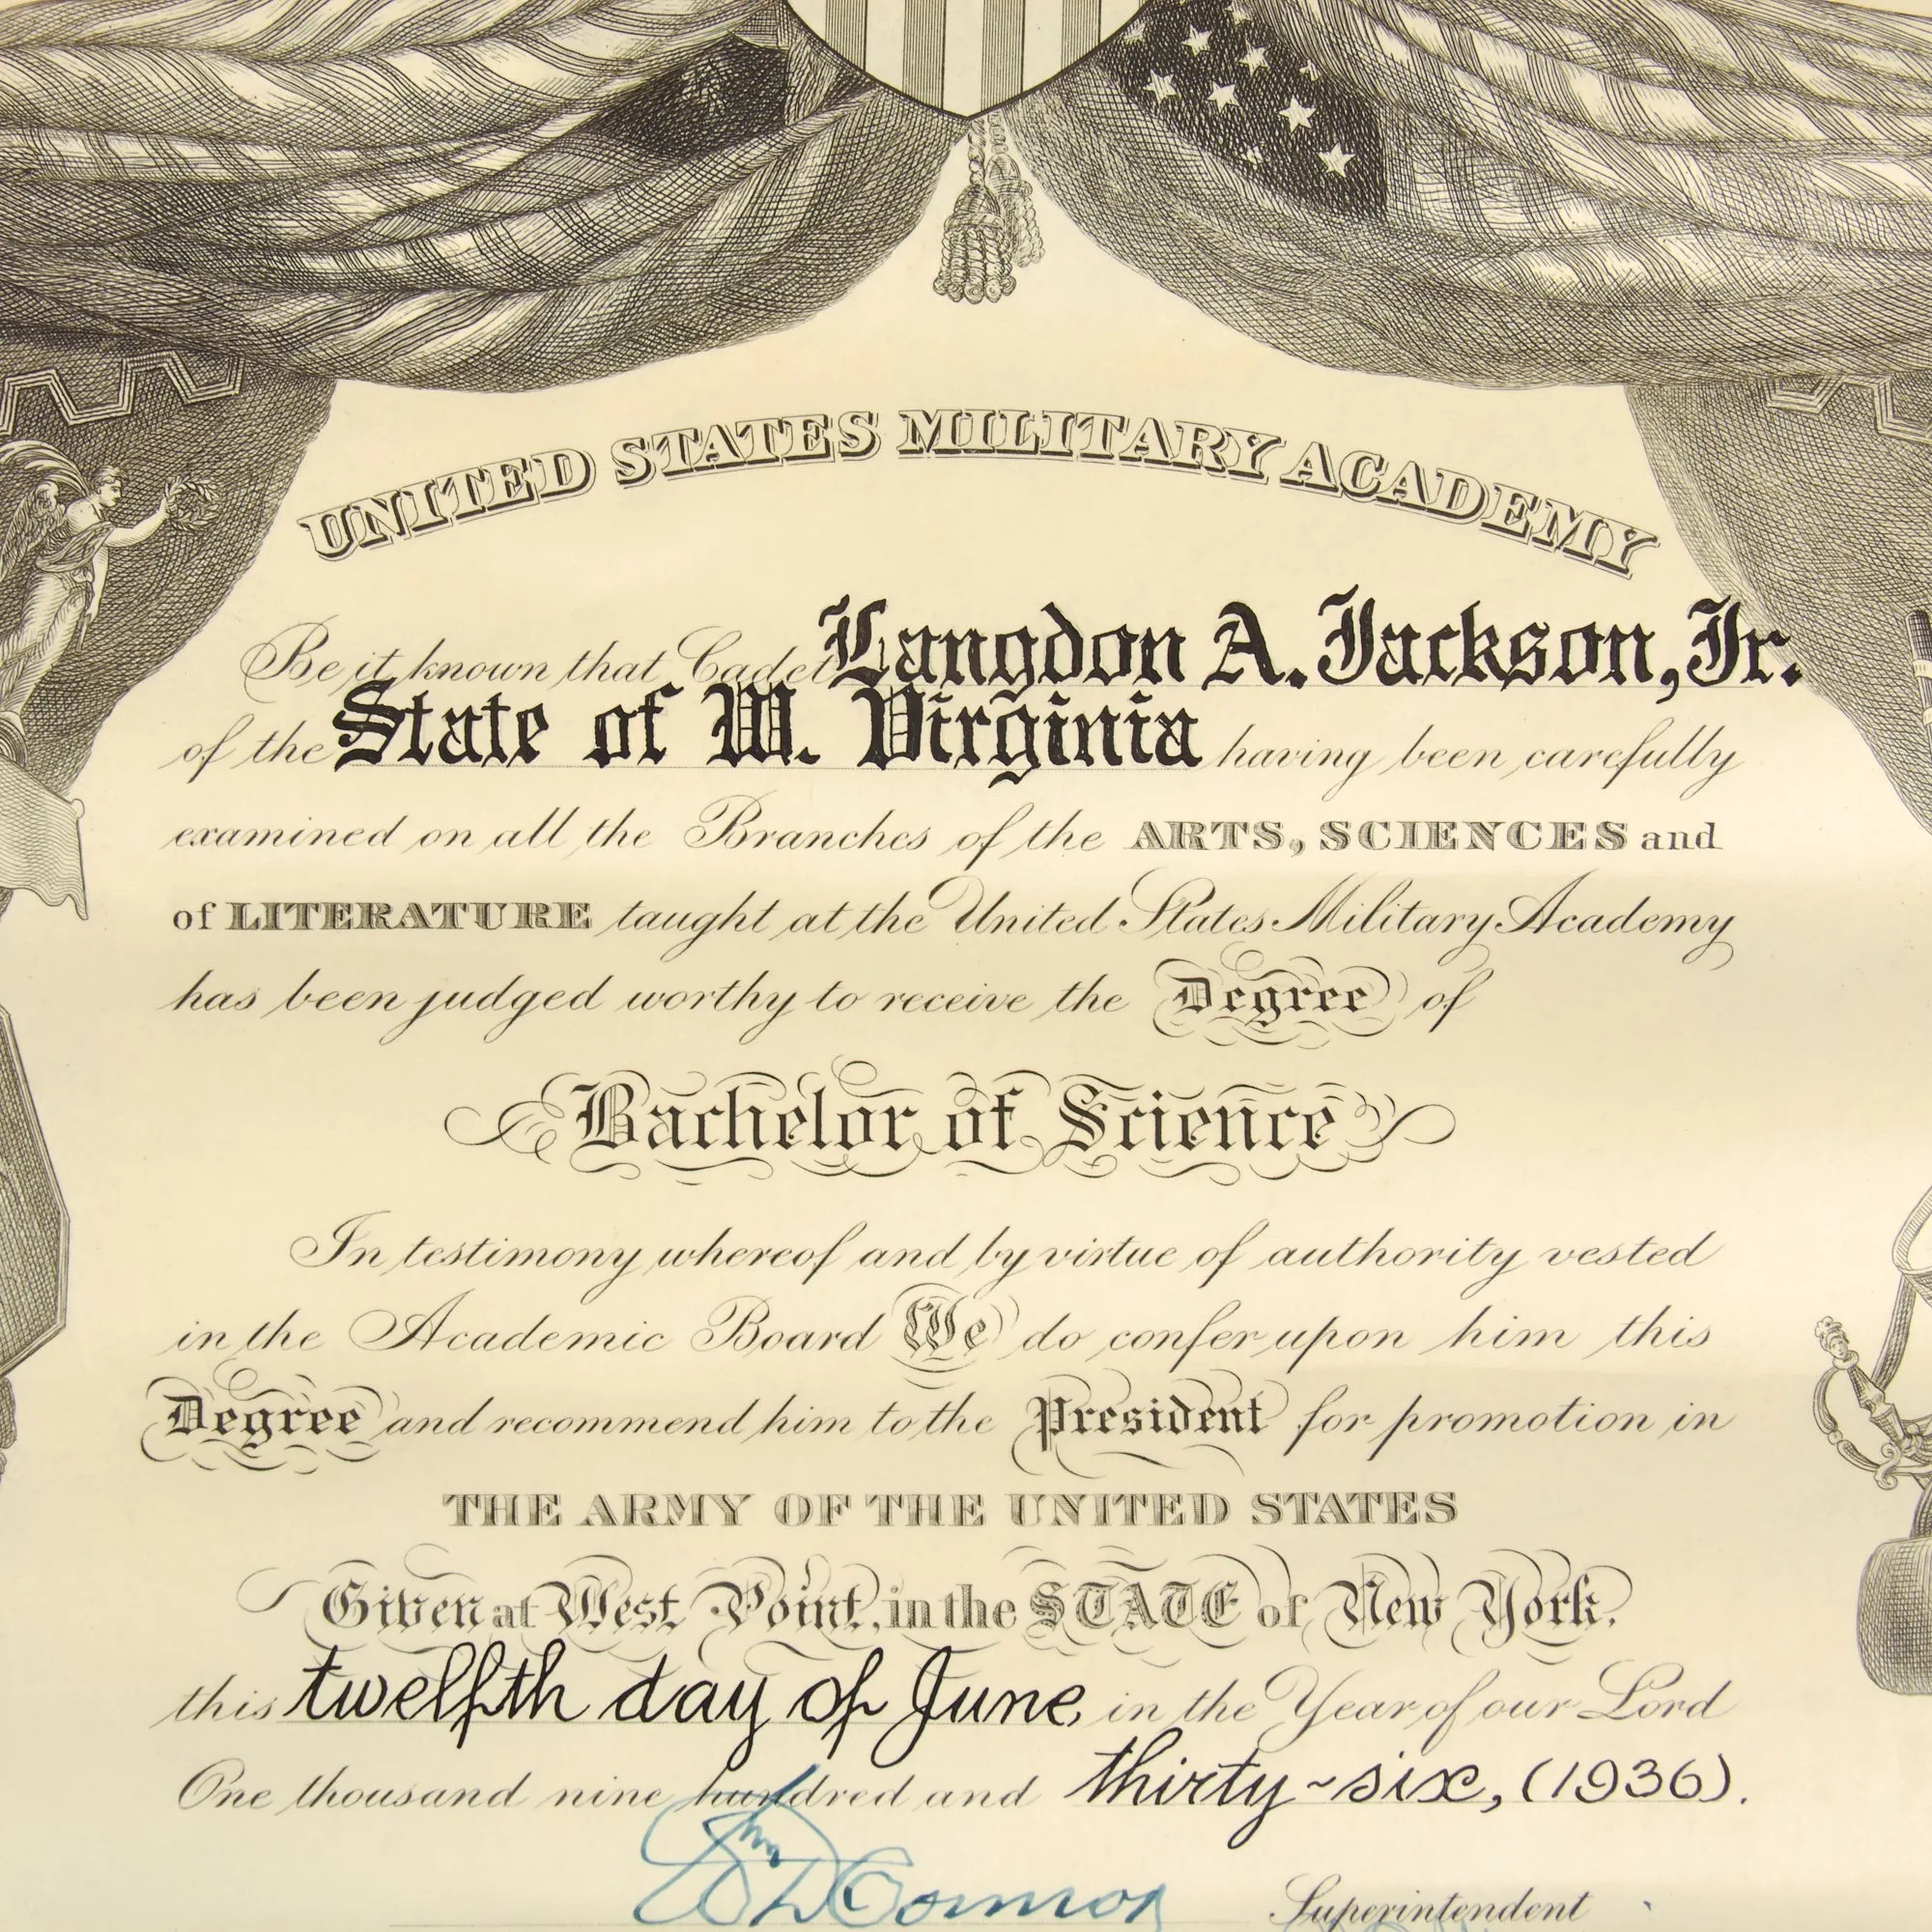 UNITED STATES MILITARY ACADEMY
Be it known that Cadet Langdon A. Jackson, Jr.
of the State of W. Virginia having been carefully
examined on all the Branches of the ARTS, SCIENCES and
of LITERATURE taught at the United States Military Academy
has been judged worthy to receive the Degree of
Bachelor of Science
In testimony whereof and by virtue of authority vested
in the Academic Board We do confer upon him this
Degree and recommend him to the President for promotion in
THE ARMY OF THE UNITED STATES
Given at West Point, in the STATE of New York.
this twelfth day of June, in the Year of our Lord
One thousand nine hundred and thirty-six, (1936).
Superintendent